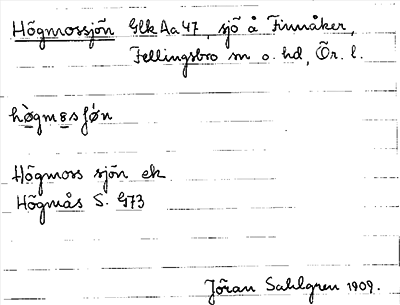 Högmossjön GlkAa47, sjö å Finnåker,
Fellingsbro sn o. hd, Ör. l.
Högmoss sjön ek
Högmås S. G73
Jöran Sahlgren 1909.